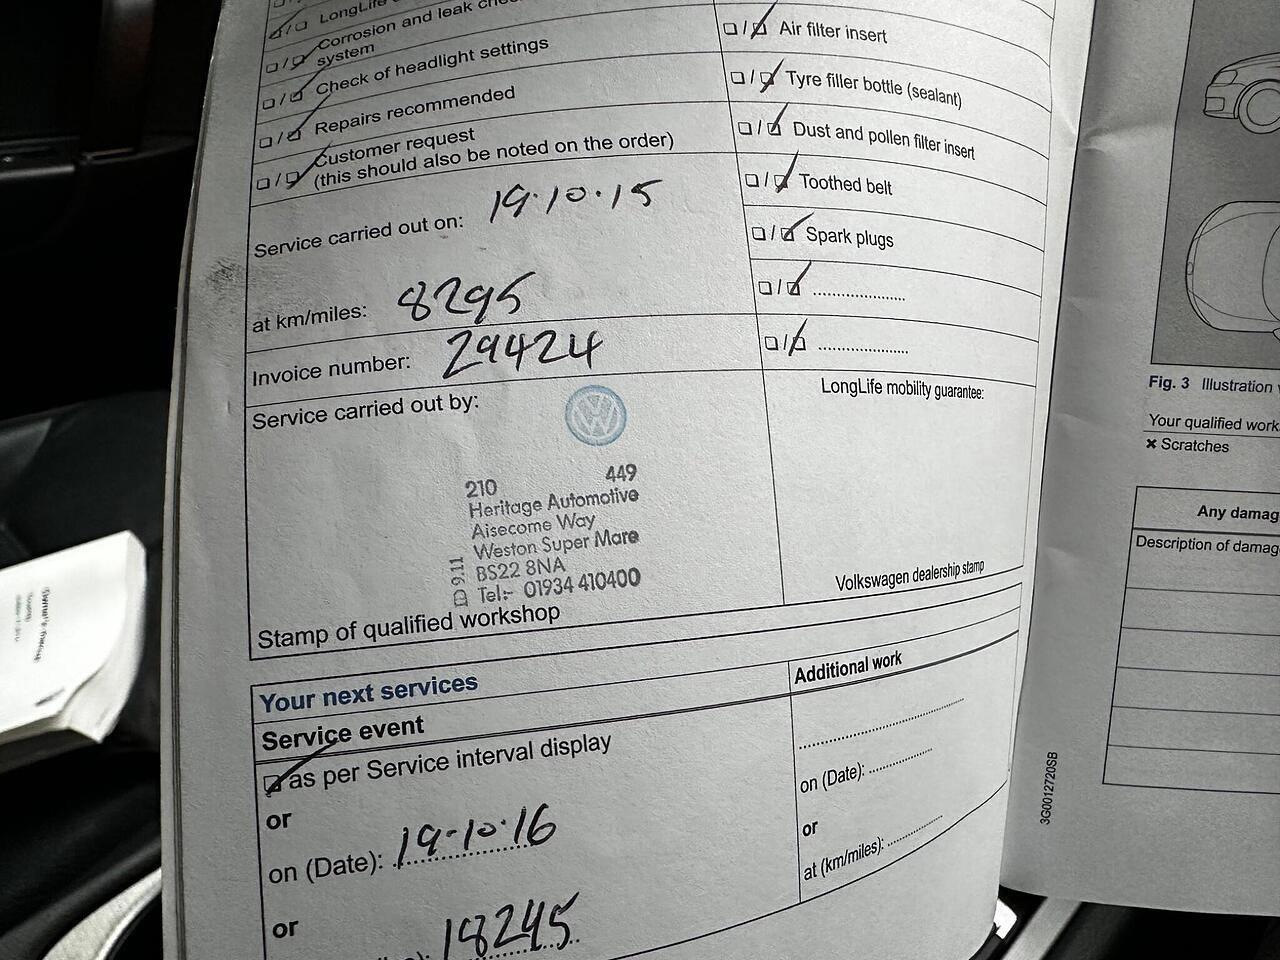 LongLife
Corrosion and leak
system
Check of headlight settings
Repairs recommended
Customer request
(this should also be noted on the order)
Service carried out on: 19.10.15
at km/miles: 8295
Invoice number: 29424
Service carried out by:
210 449
Heritage Automotive
Aisecome Way
Weston Super Mare
BS22 8NA
Tel:- 01934 410400
D 9.11
Stamp of qualified workshop
Air filter insert
Tyre filler bottle (sealant)
Dust and pollen filter insert
Toothed belt
Spark plugs
LongLife mobility guarantee:
Volkswagen dealership stamp
Your next services
Service event
as per Service interval display
or
on (Date): 19-10-16
or
18245
Additional work
on (Date):
or
at (km/miles):
3G0012720SB
Fig. 3 Illustration
Your qualified work
× Scratches
Any damag
Description of damag